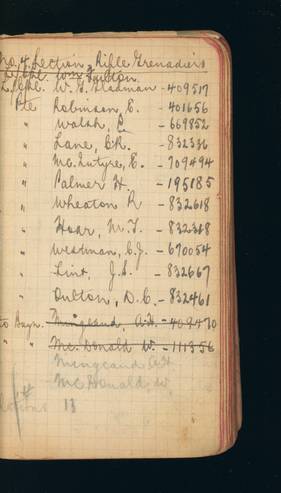 No. 4 Section, Rifle Grenadiers
W. J. Stadman - 409517
Pte Robinson, E. - 401656
" Walsh, P. - 669852
" Lane, C.R. - 832336
" Mc.Intyre, E. - 709494
" Palmer H - 195185
" Wheaton R - 832618
" Hoar, M.T. - 832318
" Westman, C.J. - 670054
" Lint, J.S. - 832667
" Oulton, D.C. - 832461
Mingeaud, A.H. - 409470
" " Mc.Donald W. - 111356
Mingeaud A.H
Mc Donald W.
13